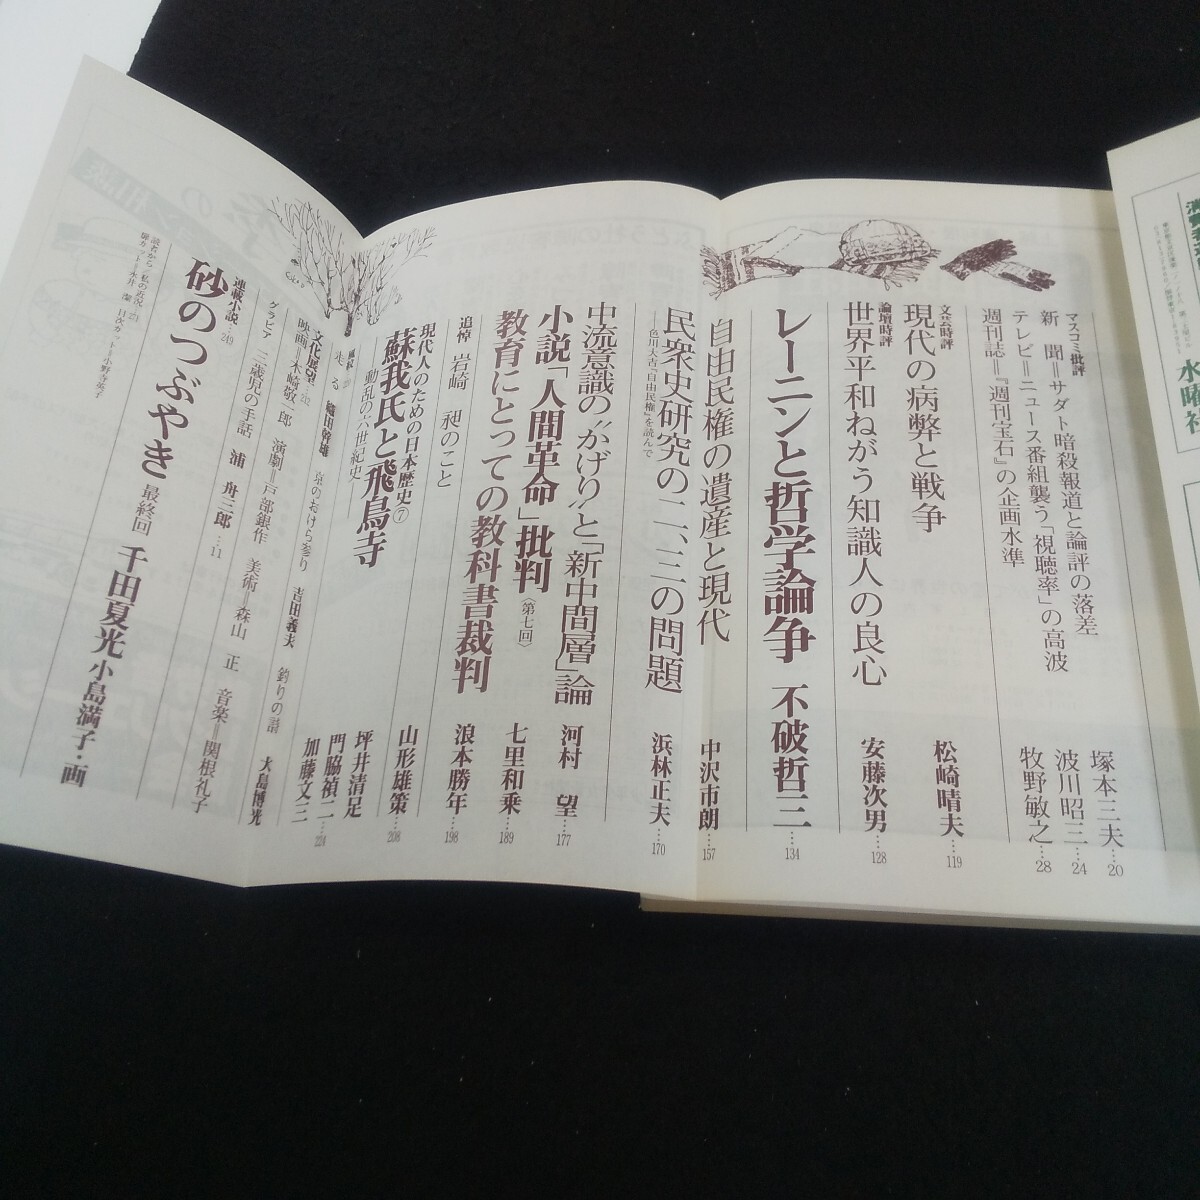 水曜社
マスコミ批評
新　聞＝サダト暗殺報道と論評の落差　塚本三夫…20
テレビ＝ニュース番組襲う「視聴率」の高波　波川昭三…24
週刊誌＝『週刊宝石』の企画水準　牧野敏之…28
文芸時評
現代の病弊と戦争　松崎晴夫…119
論壇時評
世界平和ねがう知識人の良心　安藤次男…128
レーニンと哲学論争　不破哲三…134
自由民権の遺産と現代　中沢市朗…157
民衆史研究の二、三の問題　浜林正夫…170
―色川大吉『自由民権』を読んで
中流意識の〝かげり〟と「新中間層」論　河村　望…177
小説「人間革命」批判〈第七回〉　七里和乗…189
教育にとっての教科書裁判　浪本勝年…198
追悼　岩崎　昶のこと　山形雄策…208
現代人のための日本歴史⑦
蘇我氏と飛鳥寺　坪井清足
動乱の六世紀史　門脇禎二
加藤文三…224
走る　織田幹雄　京のおけら参り　吉田義夫　釣りの譜　大島博光
文化展望…212
映画＝木崎敬一郎　演劇＝戸部銀作　美術＝森山　正　音楽＝関根礼子
グラビア　三歳児の手話　浦　舟三郎…11
連載小説…249
砂のつぶやき　最終回　千田夏光　小島満子・画
読者から／私の近況…231